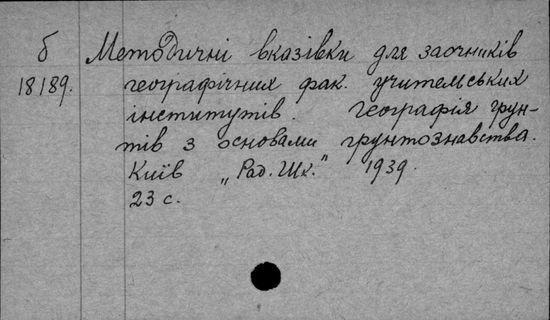 б
18189.
Методичні вказівки для заочників
географічних фак. учительських
інститутів. Географія ґрун-
тів з основами ґрунтознавства.
Київ „Рад. Шк.” 1939.
23 с.